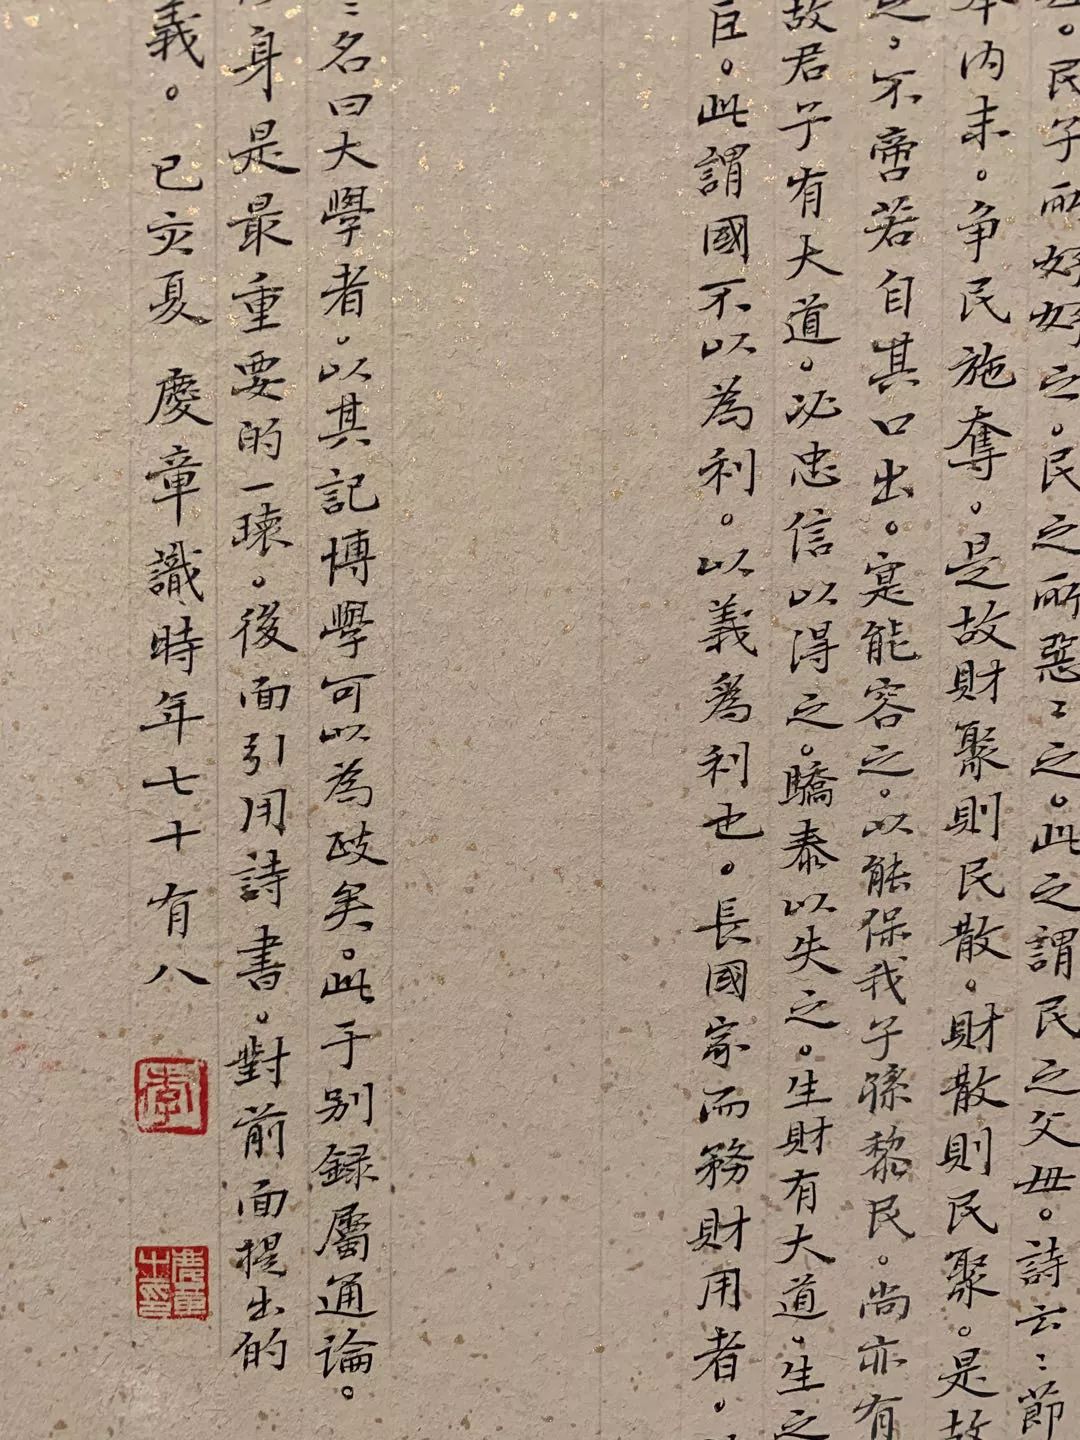 民子所好好之。民之所惡〻之。此之謂民之父毋。詩云〻節
本内末。争民施奪。是故財聚則民散。財散則民聚。是故
之,不啻若自其口出。寔能容之。以能保我子孫黎民。尚亦有
故君子有大道。必忠信以得之。驕泰以失之。生財有大道。生之
臣。此謂國不以為利。以義為利也。長國家而務財用者。
〻名曰大學者。以其記博學可以為政矣。此于别録屬通論。
身是最重要的一環。後面引用詩書。對前面提出的
義。已亥夏 慶章識時年七十有八
李